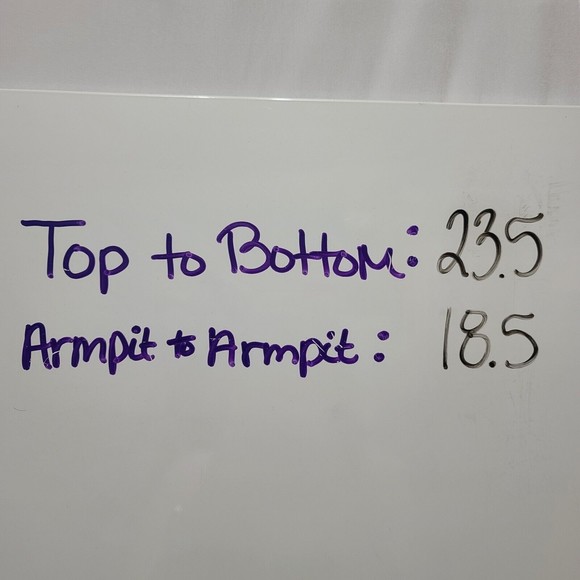 Top to Bottom: 23.5
Armpit to Armpit: 18.5